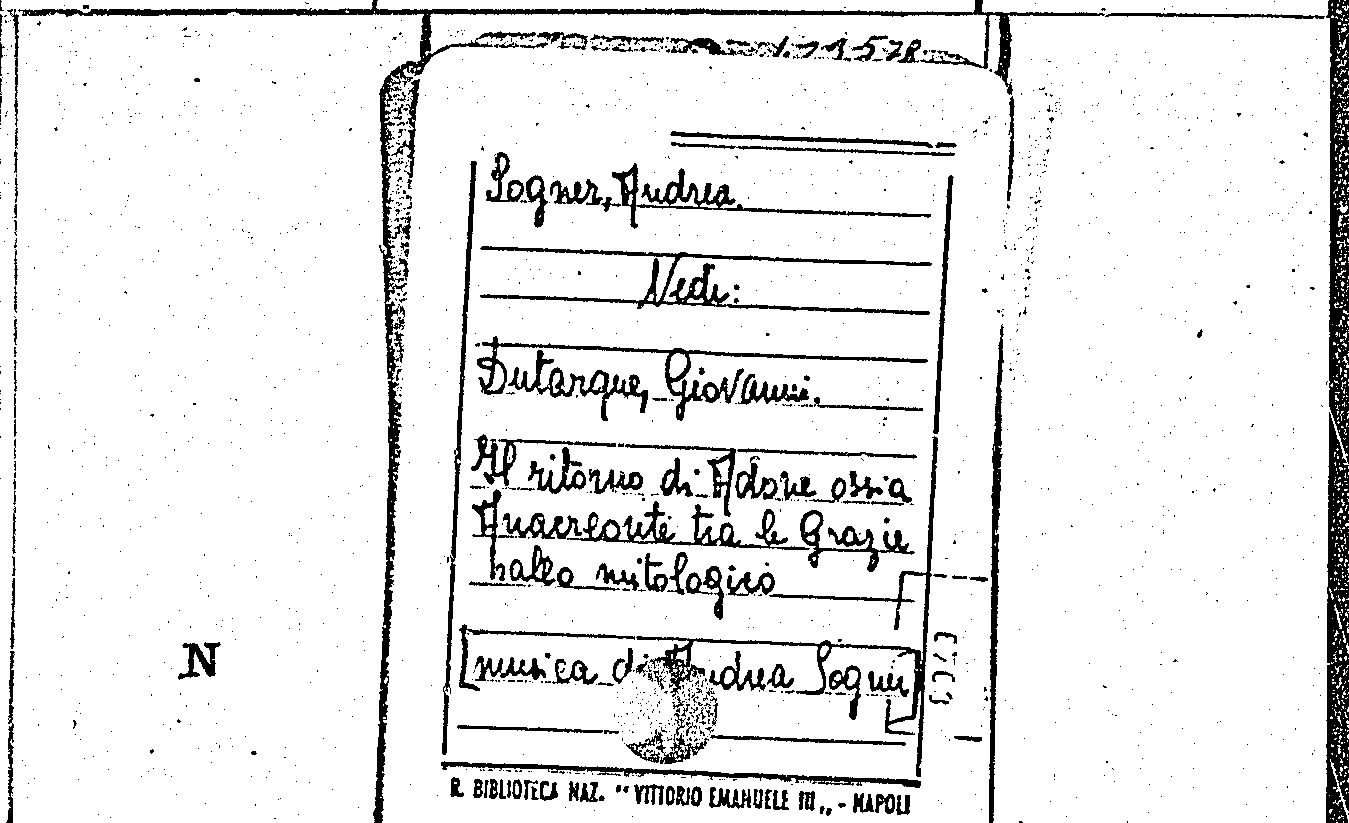 Sogner, Andrea.
Vedi:
Dutarque, Giovanni.
Il ritorno di Adone ossia
Anacreonte tra le Grazie
ballo mitologico
[musica di Andrea Sogner]
N
R. BIBLIOTECA NAZ. “ VITTORIO EMANUELE III „ - NAPOLI